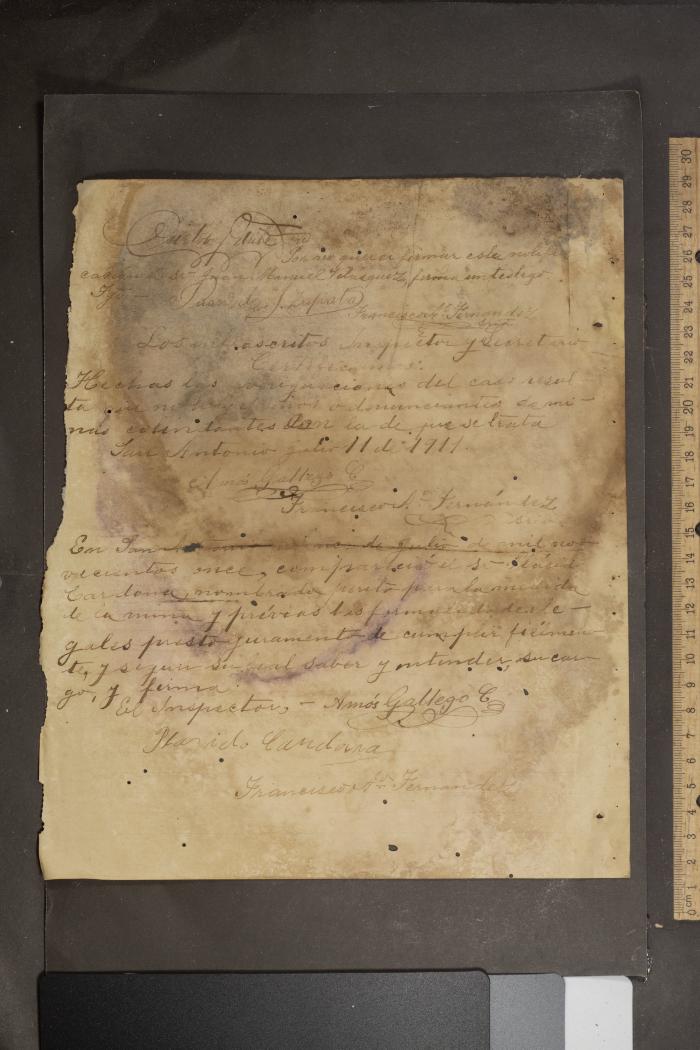 Por no querer firmar esta notifi-
cacion el Sr. Juan Manuel Velásquez, firma un testigo.
Tgo. — Juan de J. Zapata
Francisco Ant. Fernández
Srio
Los infrascritos Inspector y Secretario
Certificamos:
Hechas las averiguaciones del caso resul
ta que no hay dueños o denunciantes de mi-
nas colindantes con la de que se trata
San Antonio julio 11 de 1911.
Amós Gallego C.
Francisco A. Fernández
Srio.
En San Antonio a once de julio de mil no-
vecientos once, compareció el Sr. Plácido
Cardona, nombrado perito para la medida
de la mina y prévias las formalidades le-
gales prestó juramento de cumplir fielmen-
te, y segun su leal saber y entender, su car-
go, y firma.
El Inspector, — Amós Gallego C.
Plasido Cardona
Francisco Ant. Fernández